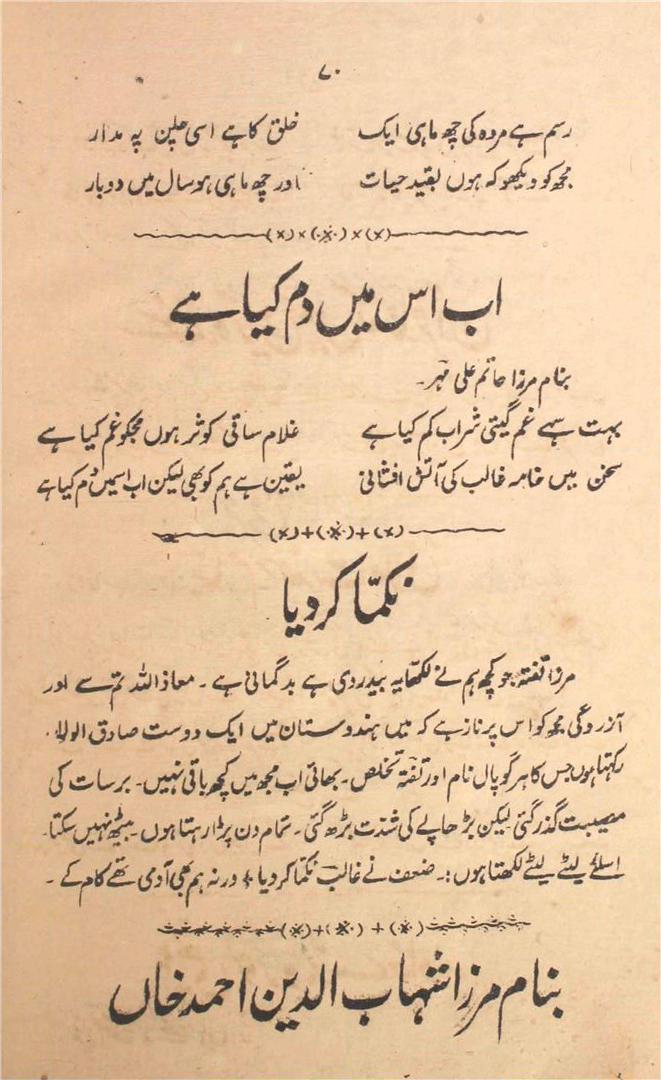 ۷۰
رسم ہے مردہ کی چھ ماہی ایک خلق کا ہے اسی چلن پہ مدار
مجھ کو دیکھو کہ ہوں بقید حیات اور چھ ماہی ہو سال میں دوبار
اب اس میں دم کیا ہے
بنام مرزا حاتم علی مہر۔
بہت سہے غم گیتی شراب کم کیا ہے غلام ساقی کوثر ہوں مجکو غم کیا ہے
سخن میں خامہ غالب کی آتش افشانی یقین ہے ہم کو بھی لیکن اب اسمیں دُم کیا ہے
نکمّا کر دیا
مرزا تفتہ جو کچھ ہم نے لکھا یہ بیدردی ہے بدگمانی ہے۔ معاذ اللہ تم سے اور
آزردگی مجھ کو اس پر ناز ہے کہ میں ہندوستان میں ایک دوست صادق الولا
رکہتا ہوں جس کا ہرگوپال نام اور تفتہ تخلص۔ بھائی اب مجھ میں کچھ باقی نہیں۔ برسات کی
مصیبت گذر گئی لیکن بڑھاپے کی شدت بڑھ گئی۔ تمام دن پڑا رہتا ہوں۔ بیٹھ نہیں سکتا۔
اسلئے لیٹے لیٹے لکھتا ہوں:۔ ضعف نے غالب نکمّا کر دیا + ورنہ ہم بھی آدمی تھے کام کے۔
بنام مرزا شہاب الدین احمد خاں